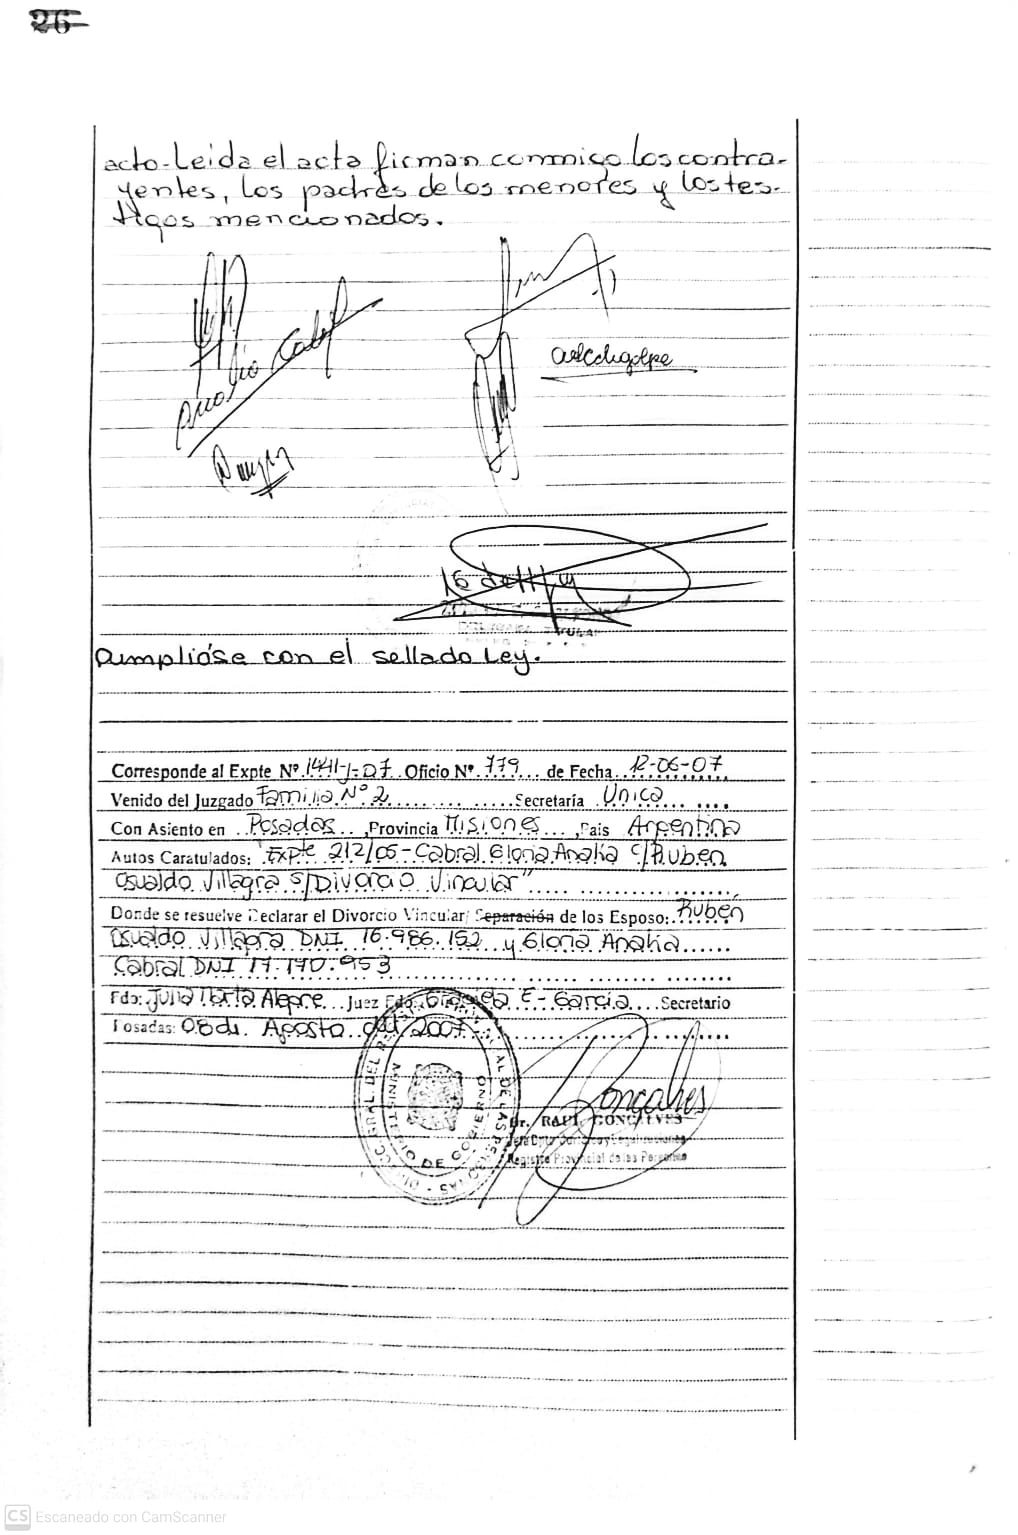 26
acto-Leida el acta firman conmigo los contra-
yentes, los padres de los menores y los tes-
tigos mencionados.
Cumplióse con el sellado Ley.
Corresponde al Expte Nº 1441-J-07 Oficio Nº 779 de Fecha 12-06-07
Venido del Juzgado Familia Nº 2 Secretaría Única
Con Asiento en Posadas, Provincia Misiones, Pais Argentina
Autos Caratulados: "Expte 212/05-Cabral Gloria Analia c/Ruben
Osvaldo Villagra s/Divorcio Vincular"
Donde se resuelve Declarar el Divorcio Vincular/ Separación de los Esposo: Rubén
Osvaldo Villagra DNI 16.986.152 y Gloria Analia
Cabral DNI 17.170.953
Fdo: Julia Marta Alegre Juez Fdo. Graciela E. Garcia Secretario
Posadas: 08 de Agosto del 2007
MINISTERIO DE GOBIERNO
Dr. RAUL GONCALVES
Registro Provincial de las Personas
CS Escaneado con CamScanner